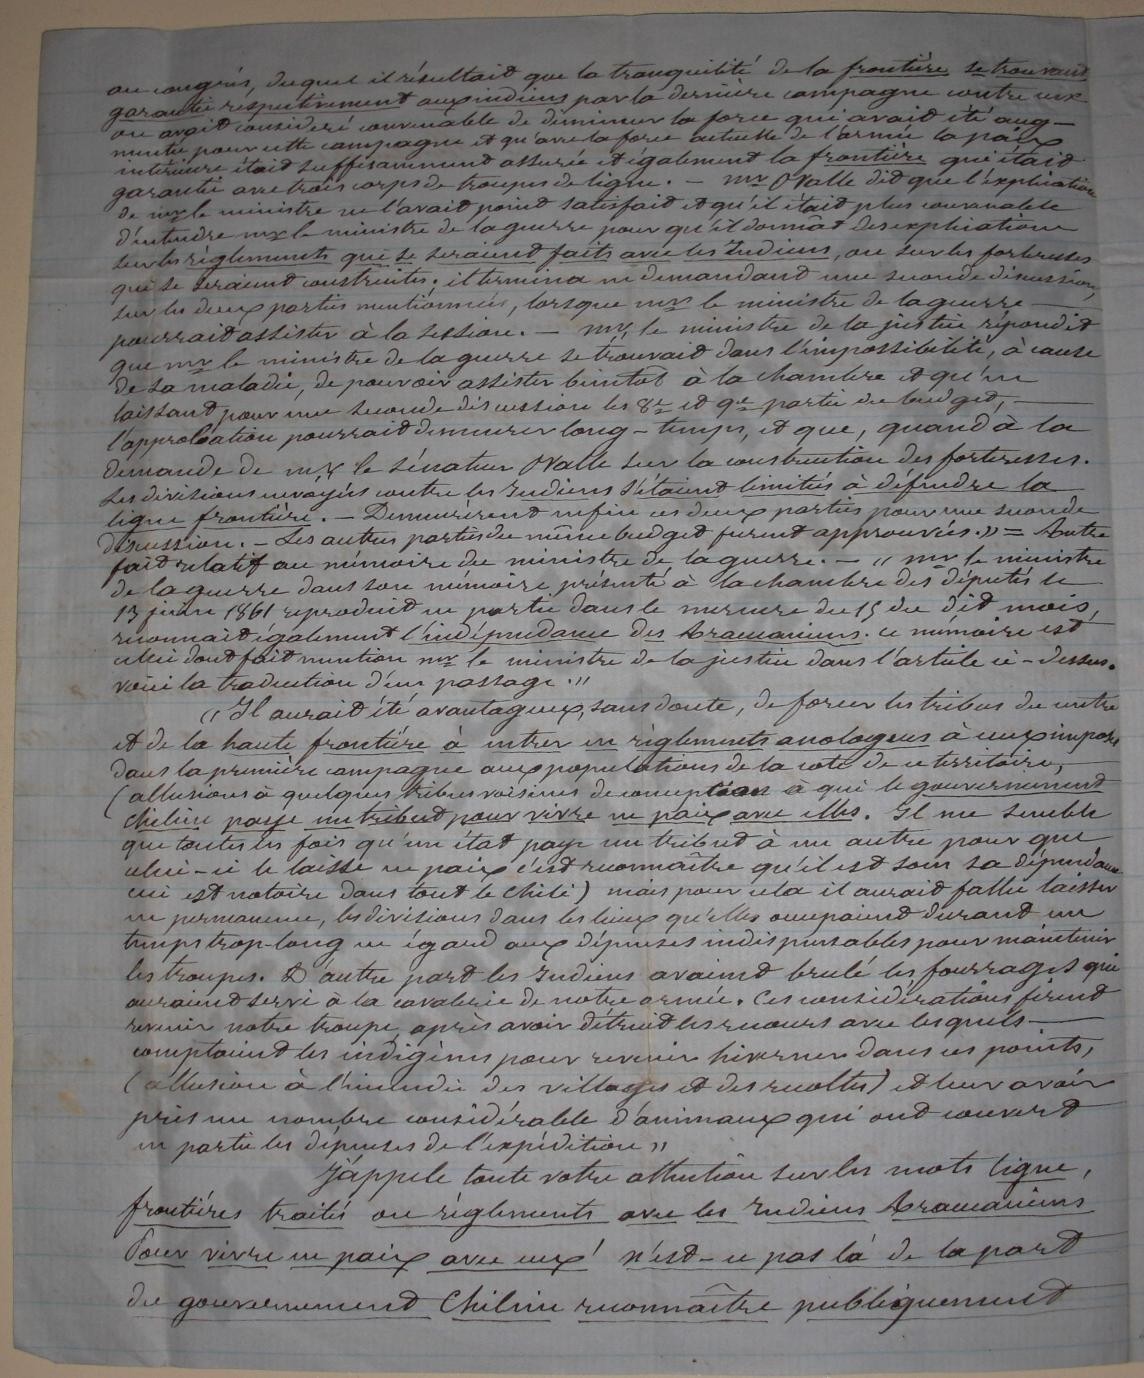 au congrès, duquel il résultait que la tranquilité de la frontière se trouvant
garantie respectivement aux indiens par la dernière campagne contre eux
on avait consideré convenable de diminuer la force qui avait été aug-
mentée pour cette campagne et qu'avec la force actuelle de l'armée la paix
intérieure était suffisamment assurée et également la frontière qui était
garantie avec trois corps de troupes de ligne. — mr Ovalle dit que l'explication
de mr le ministre ne l'avait point satisfait et qu'il était plus convenable
d'entendre mr le ministre de la guerre pour qu'il donnât des explications
sur les règlements qui se seraient faits avec les Indiens, ou sur les forteresses
qui se seraient construites; il termina en demandant une seconde discussion,
sur les deux parties mentionnées, lorsque mr le ministre de la guerre —
pourrait assister à la session. — mr le ministre de la justice répondit
que mr le ministre de la guerre se trouvait dans l'impossibilité, à cause
de sa maladie, de pouvoir assister bientot à la chambre et qu'en
laissant pour une seconde discussion les 8e et 9e partie du budget, —
l'approbation pourrait demeurer long-temps, et que, quand à la
demande de mr le sénateur Ovalle sur la construction des forteresses.
Les divisions envoyées contre les Indiens s'étaient limités à défendre la
ligne frontière. — Demeurèrent enfin ces deux parties pour une seconde
discussion. — Les autres parties du même budget furent approuvées.» = Autre
fait relatif au mémoire du ministre de la guerre. — « mr le ministre
de la guerre dans son mémoire présenté à la chambre des députés le
13 juin 1861 reproduit en partie dans le mercure du 15 du dit mois,
reconnait également l'indépendance des Araucaniens. ce mémoire est
celui dont fait mention mr le ministre de la justice dans l'article ci-dessus.
voici la traduction d'un passage.»
« Il aurait été avantageux, sans doute, de forcer les tribus du centre
et de la haute frontière à entrer en règlements analogues à ceux imposés
dans la première campagne aux populations de la cote de ce territoire, —
(allusions à quelques tribus voisines de conception à qui le gouvernement
chilien paye un tribut pour vivre en paix avec elles. Il me semble
que toutes les fois qu'un état paye un tribut à un autre pour que
celui-ci le laisse en paix c'est reconnaître qu'il est sous sa dépendance
ceci est notoire dans tout le Chili) mais pour cela il aurait fallu laisser
en permanence, les divisions dans les lieux qu'elles occupaient durant un
temps trop-long en égard aux dépenses indispensables pour maintenir
les troupes. D'autre part les Indiens avaient brulé les fourrages qui
auraient servi à la cavalerie de notre armée. Ces considérations firent
revenir notre troupe, après avoir détruit les recours avec lesquels —
comptaient les indigènes pour revenir hiverner dans ces points,
(allusion à l'incendie des villages et des recoltes) et leur avoir
pris un nombre considérable d'animaux qui ont couvert
en partie les dépenses de l'expédition»
J'appele toute votre attention sur les mots ligne,
frontières traités ou règlements avec les Indiens Araucaniens
Pour vivre en paix avec eux! n'est-ce pas là de la part
du gouvernement Chilien reconnaître publiquement